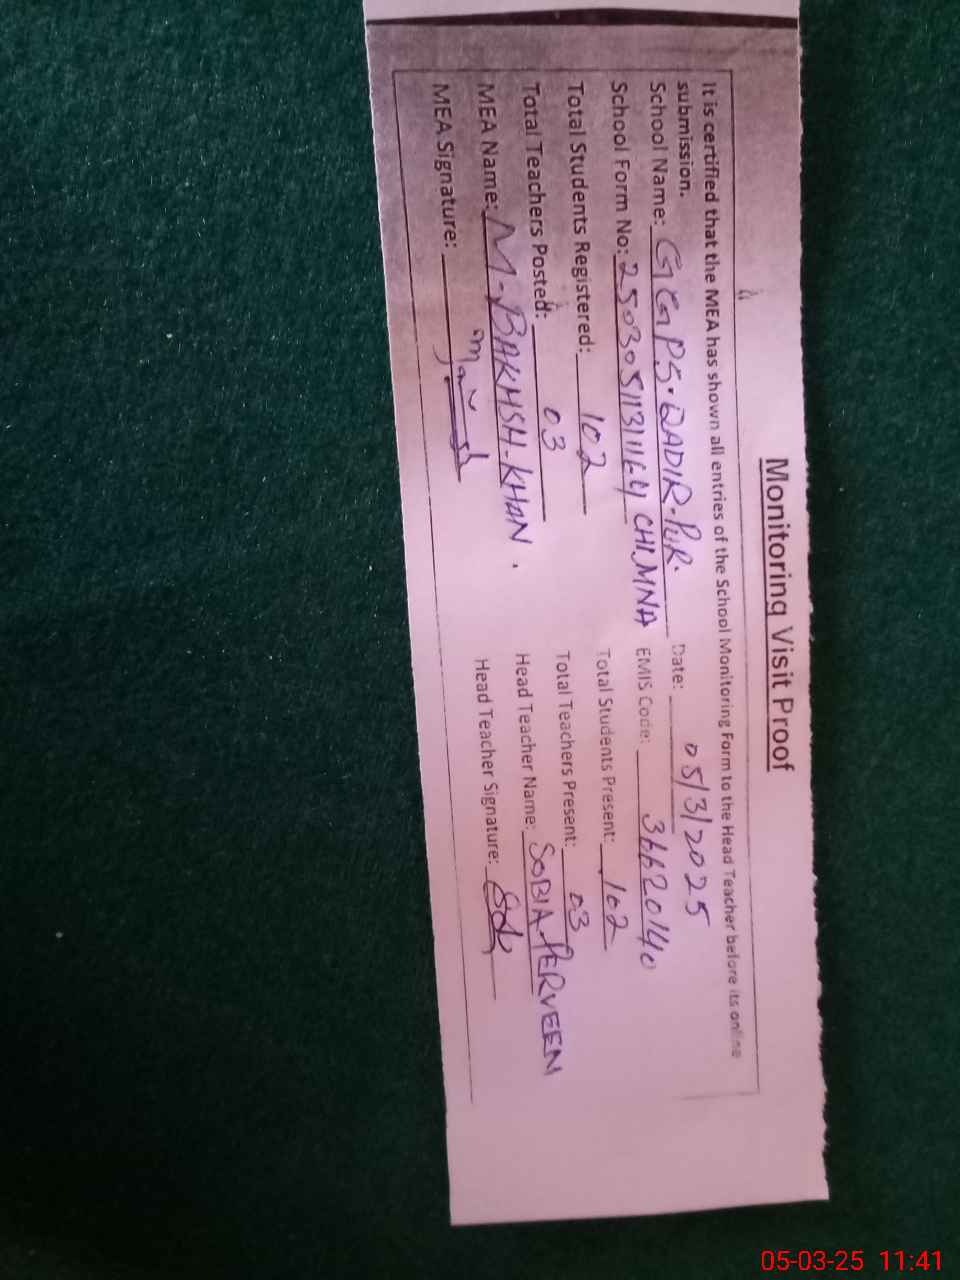 Monitoring Visit Proof
It is certified that the MEA has shown all entries of the School Monitoring Form to the Head Teacher before its online
submission.
School Name: GGPS. QADIR-PUR. Date: 05/3/2025
CHIMNA
School Form No: EMIS Code: 36620140
Total Students Registered: 102 Total Students Present: 102
Total Teachers Posted: 03 Total Teachers Present: 03
MEA Name: M-BAKHSH-KHAN. Head Teacher Name: SOBIA PERVEEN
MEA Signature: Head Teacher Signature:
05-03-25 11:41